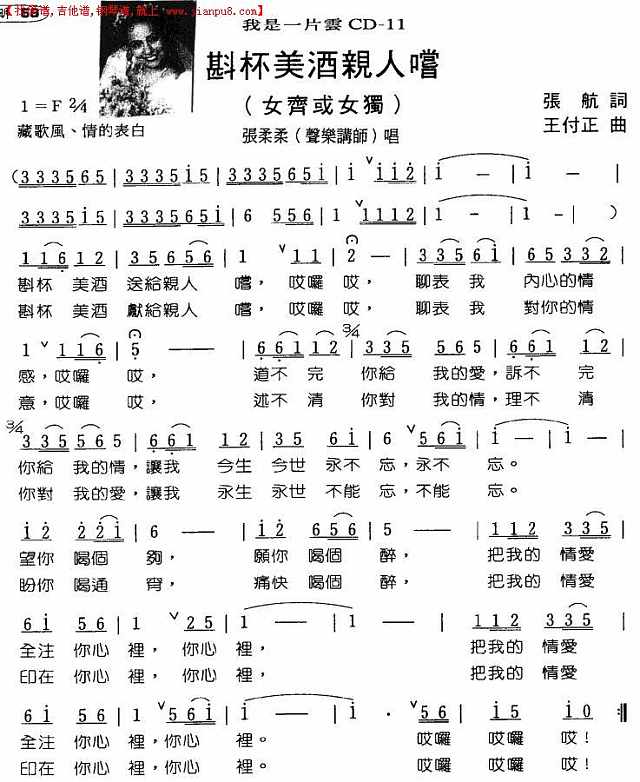 【找歌谱,吉他谱,钢琴谱,就上 www.jianpu8.com】
我是一片雲 CD-11
斟杯美酒親人嚐
（女齊或女獨）
1=F 2/4
張 航 詞
王付正 曲
藏歌風、情的表白
張柔柔（聲樂講師）唱
(3335 65 | 3335 i5 | 3335 65 | 3335 65 | i ˅ i i 2 | i — | i — |
3335 i5 | 3335 65 | 6 556 | 1 ˅ 1112 | 1 — | 1 — | )
116 12 | 35 656 | 1 ˅ 11 | 2 — | 335 1 | 65 332 |
斟杯 美酒 送給親人 嚐，哎囉 哎， 聊表 我 內心的情
斟杯 美酒 獻給親人 嚐，哎囉 哎， 聊表 我 對你的情
1 ˅ 116 | 5 — | 661 12 | 335 565 | 661 12 |
感，哎囉 哎， 道不 完 你給 我的愛，訴不 完
意，哎囉 哎， 述不 清 你對 我的情，理不 清
3/4 335 565 | 661 35 | 65 12 | i ˅ 56i | i — | i — |
你給 我的情，讓我 今生 今世 永不 忘，永不 忘。
你對 我的愛，讓我 永生 永世 不能 忘，不能 忘。
i2 22i | 6 — | i2 656 | 5 — | 5 — | 112 335 |
望你 喝個 夠， 願你 喝個 醉， 把我的 情愛
盼你 喝通 宵， 痛快 喝個 醉， 把我的 情愛
6i 56 | 1 ˅ 25 | 1 — | 1 — | 112 335 |
全注 你心 裡，你心 裡， 把我的 情愛
印在 你心 裡，你心 裡， 把我的 情愛
6i 56 | 1 ˅ 56i | i — | i · ˅ 56 | i5 i0 :||
全注 你心 裡，你心 裡。 哎囉 哎囉 哎！
印在 你心 裡，你心 裡。 哎囉 哎囉 哎！